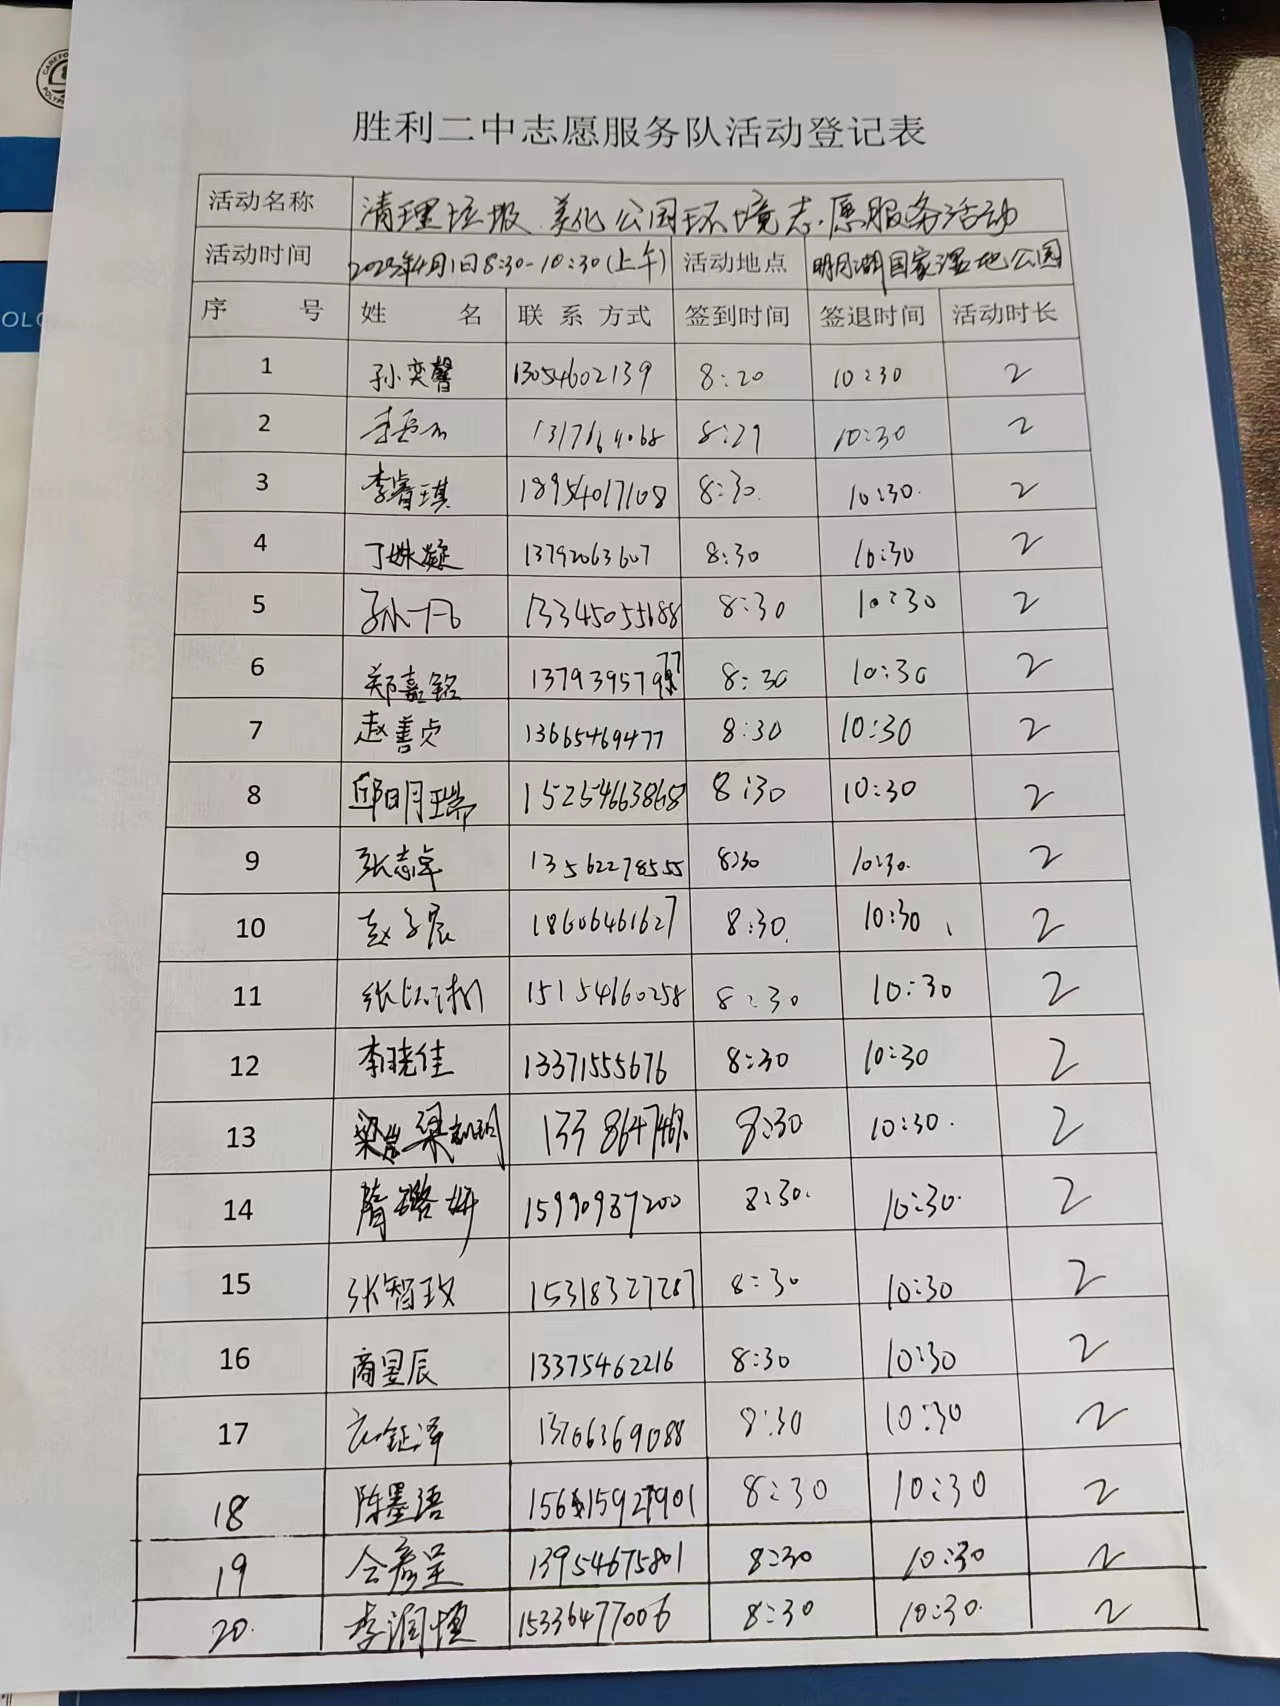 胜利二中志愿服务队活动登记表
活动名称 清理垃圾 美化公园环境志愿服务活动
活动时间 2023年4月1日 8:30-10:30(上午) 活动地点 明月湖国家湿地公园
序 号 姓 名 联 系 方式 签到时间 签退时间 活动时长
1 孙奕馨 13054602139 8:20 10:30 2
2 8:29 10:30 2
3 李睿琪 18954017108 8:30. 10:30. 2
4 丁姝凝 13792063607 8:30 10:30 2
5 孙一凡 13345055688 8:30 10:30 2
6 郑嘉铭 8:30 10:30 2
7 赵善贞 13665469477 8:30 10:30 2
8 邱明瑞 15254663868 8:30 10:30 2
9 张志卓 13562278555 8:30 10:30. 2
10 赵子辰 18606461627 8:30. 10:30 2
11 张 15154660258 8:30 10:30 2
12 李晓佳 13371555676 8:30 10:30 2
13 梁 8:30 10:30. 2
14 隋璐妍 15990987200 8:30. 10:30. 2
15 张智玫 15318327287 8:30 10:30 2
16 商昱辰 13375462216 8:30 10:30 2
17 钲泽 13706369088 8:30 10:30 2
18 陈墨语 8:30 10:30 2
19 仝彦呈 13954675801 8:30 10:30 2
20. 李润恒 15336477006 8:30 10:30. 2